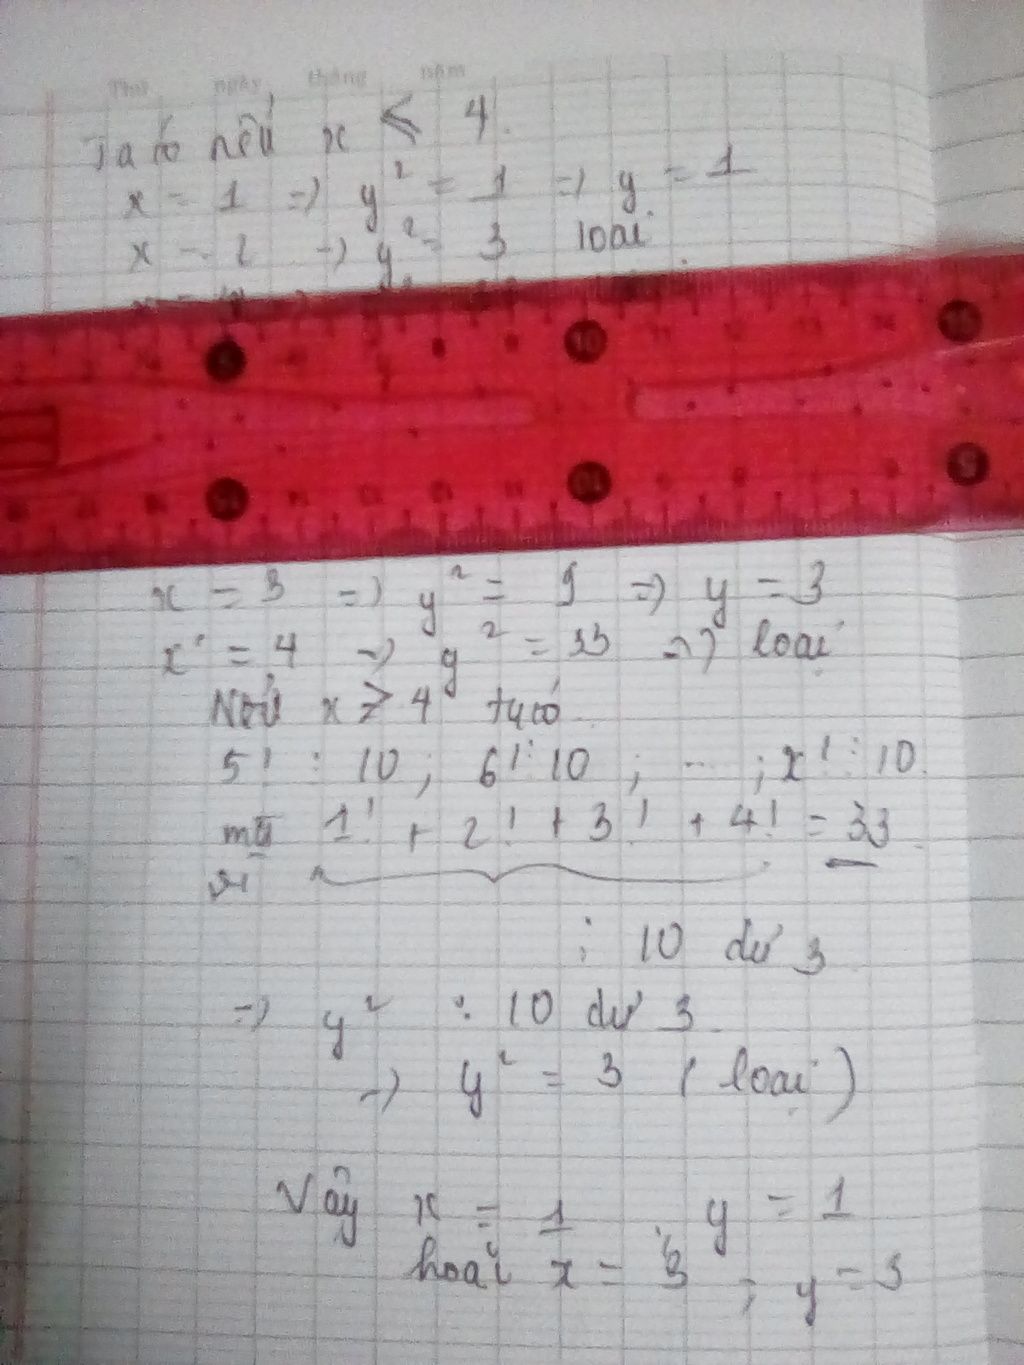 Thứ ngày tháng năm
Ta có nếu x ⩽ 4.
x = 1 => y² = 1 => y = 1
x = 2 => y² = 3 loại
x = 3 => y² = 9 => y = 3
x = 4 => y² = 33 => loại
Nếu x ⩾ 4 ta có
5! ⋮ 10 ; 6! ⋮ 10 ; ... ; x! ⋮ 10.
mà 1! + 2! + 3! + 4! = 33
: 10 dư 3
=> y² : 10 dư 3.
=> y² = 3 ( loại )
Vậy x = 1 y = 1
hoặc x = 3 ; y = 3